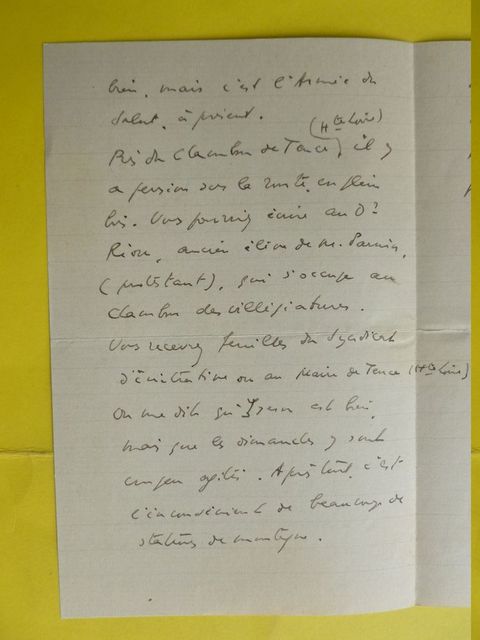 bien, mais c'est l'Armée du
Salut, à présent.
(Hte Loire)
Près du Chambon de Tence, il y
a pension sur la route, en plein
bois. Vous pourriez écrire au Dr
Riou, ancien élève de M.
(protestant), qui s'occupe au
Chambon des villégiatures.
Vous recevrez feuilles du Syndicat
d'initiative ou au Maire de Tence (Hte Loire)
On me dit qu'Yssen est bien
mais que les dimanches y sont
un peu agités. Après tout, c'est
l'inconvénient de beaucoup de
stations de montagne.